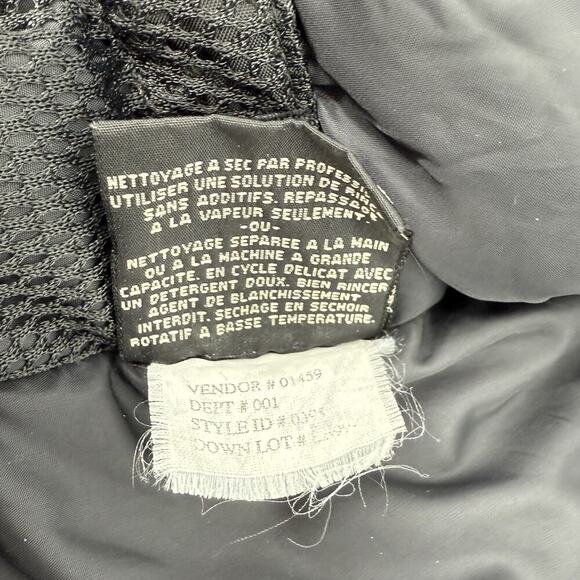 NETTOYAGE A SEC PAR
UTILISER UNE SOLUTION DE
SANS ADDITIFS. REPASSAGE
A LA VAPEUR SEULEMENT.
-OU-
NETTOYAGE SEPAREE A LA MAIN
OU A LA MACHINE A GRANDE
CAPACITE. EN CYCLE DELICAT AVEC
UN DETERGENT DOUX. BIEN RINCER
AGENT DE BLANCHISSEMENT
INTERDIT. SECHAGE EN SECHOIR
ROTATIF A BASSE TEMPERATURE.
VENDOR # 01459
DEPT # 001
STYLE ID #
DOWN LOT #